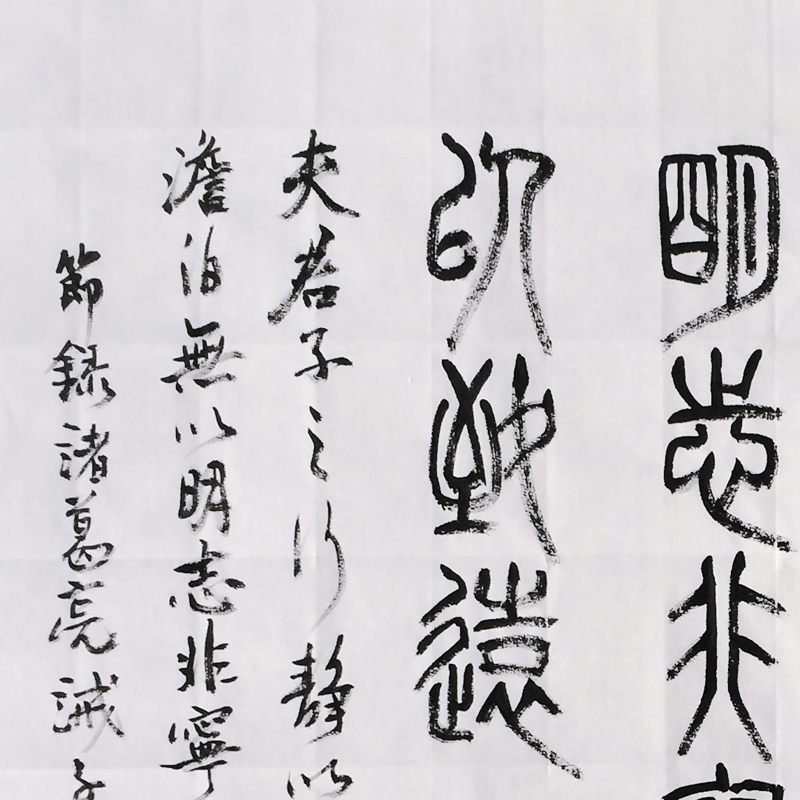 明志非寧
以致遠
夫君子之行靜以
澹泊無以明志非寧
節錄諸葛亮誡子